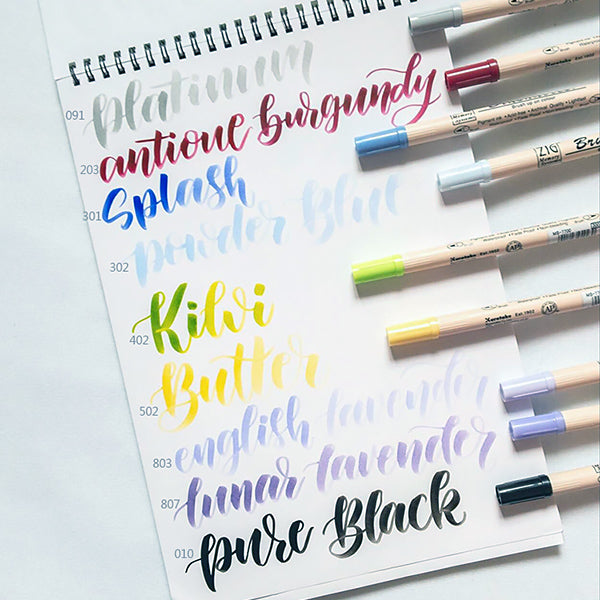 091 platinum
203 antique burgundy
301 Splash
302 powder Blue
402 Kiwi
502 Butter
803 english lavender
807 lunar lavender
010 pure Black
ZIG
Kuretake Est.1902
MS-7700
Kuretake Est.1902